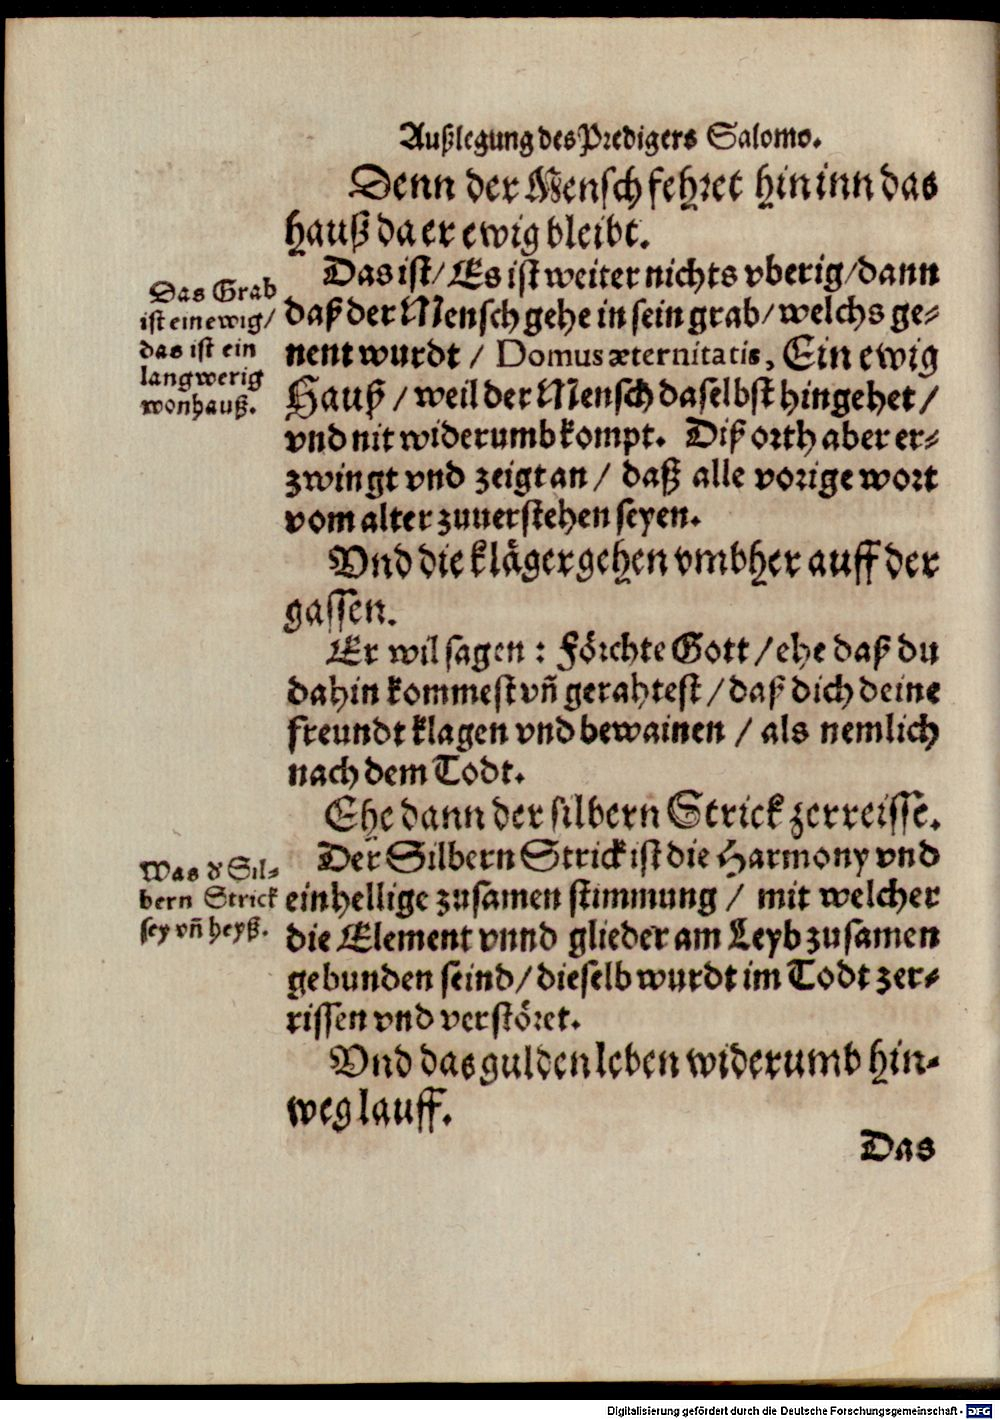 Außlegung des Predigers Salomo.
Denn der Mensch fehret hin inn das
hauß da er ewig bleibt.
Das ist / Es ist weiter nichts vberig / dann
daß der Mensch gehe in sein grab / welchs ge-
nent wurdt / Domus æternitatis, Ein ewig
Hauß / weil der Mensch daselbst hingehet /
vnd nit widerumb kompt. Diß orth aber er-
zwingt vnd zeigt an / daß alle vorige wort
vom alter zuuerstehen seyen.
Das Grab
ist ein ewig /
das ist ein
langwerig
wonhauß.
Vnd die kläger gehen vmbher auff der
gassen.
Er wil sagen : Förchte Gott / ehe daß du
dahin kommest vñ gerahtest / daß dich deine
freundt klagen vnd bewainen / als nemlich
nach dem Todt.
Ehe dann der silbern Strick zerreisse.
Der Silbern Strick ist die Harmony vnd
einhellige zusamen stimmung / mit welcher
die Element vnnd glieder am Leyb zusamen
gebunden seind / dieselb wurdt im Todt zer-
rissen vnd verstöret.
Was d' Sil-
bern Strick
sey vñ heyß.
Vnd das gulden leben widerumb hin-
weg lauff.
Das
Digitalisierung gefördert durch die Deutsche Forschungsgemeinschaft - DFG